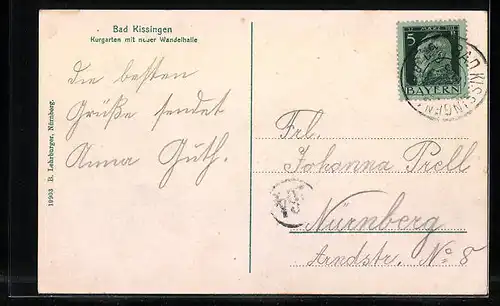 Bad Kissingen
Kurgarten mit neuer Wandelhalle
Die besten
Grüße sendet
Anna Guth.
19903 B. Lehrburger, Nürnberg.
5
BAYERN
BAD KISSINGEN
Frl.
Johanna Prell
Nürnberg
Arndstr. No 8